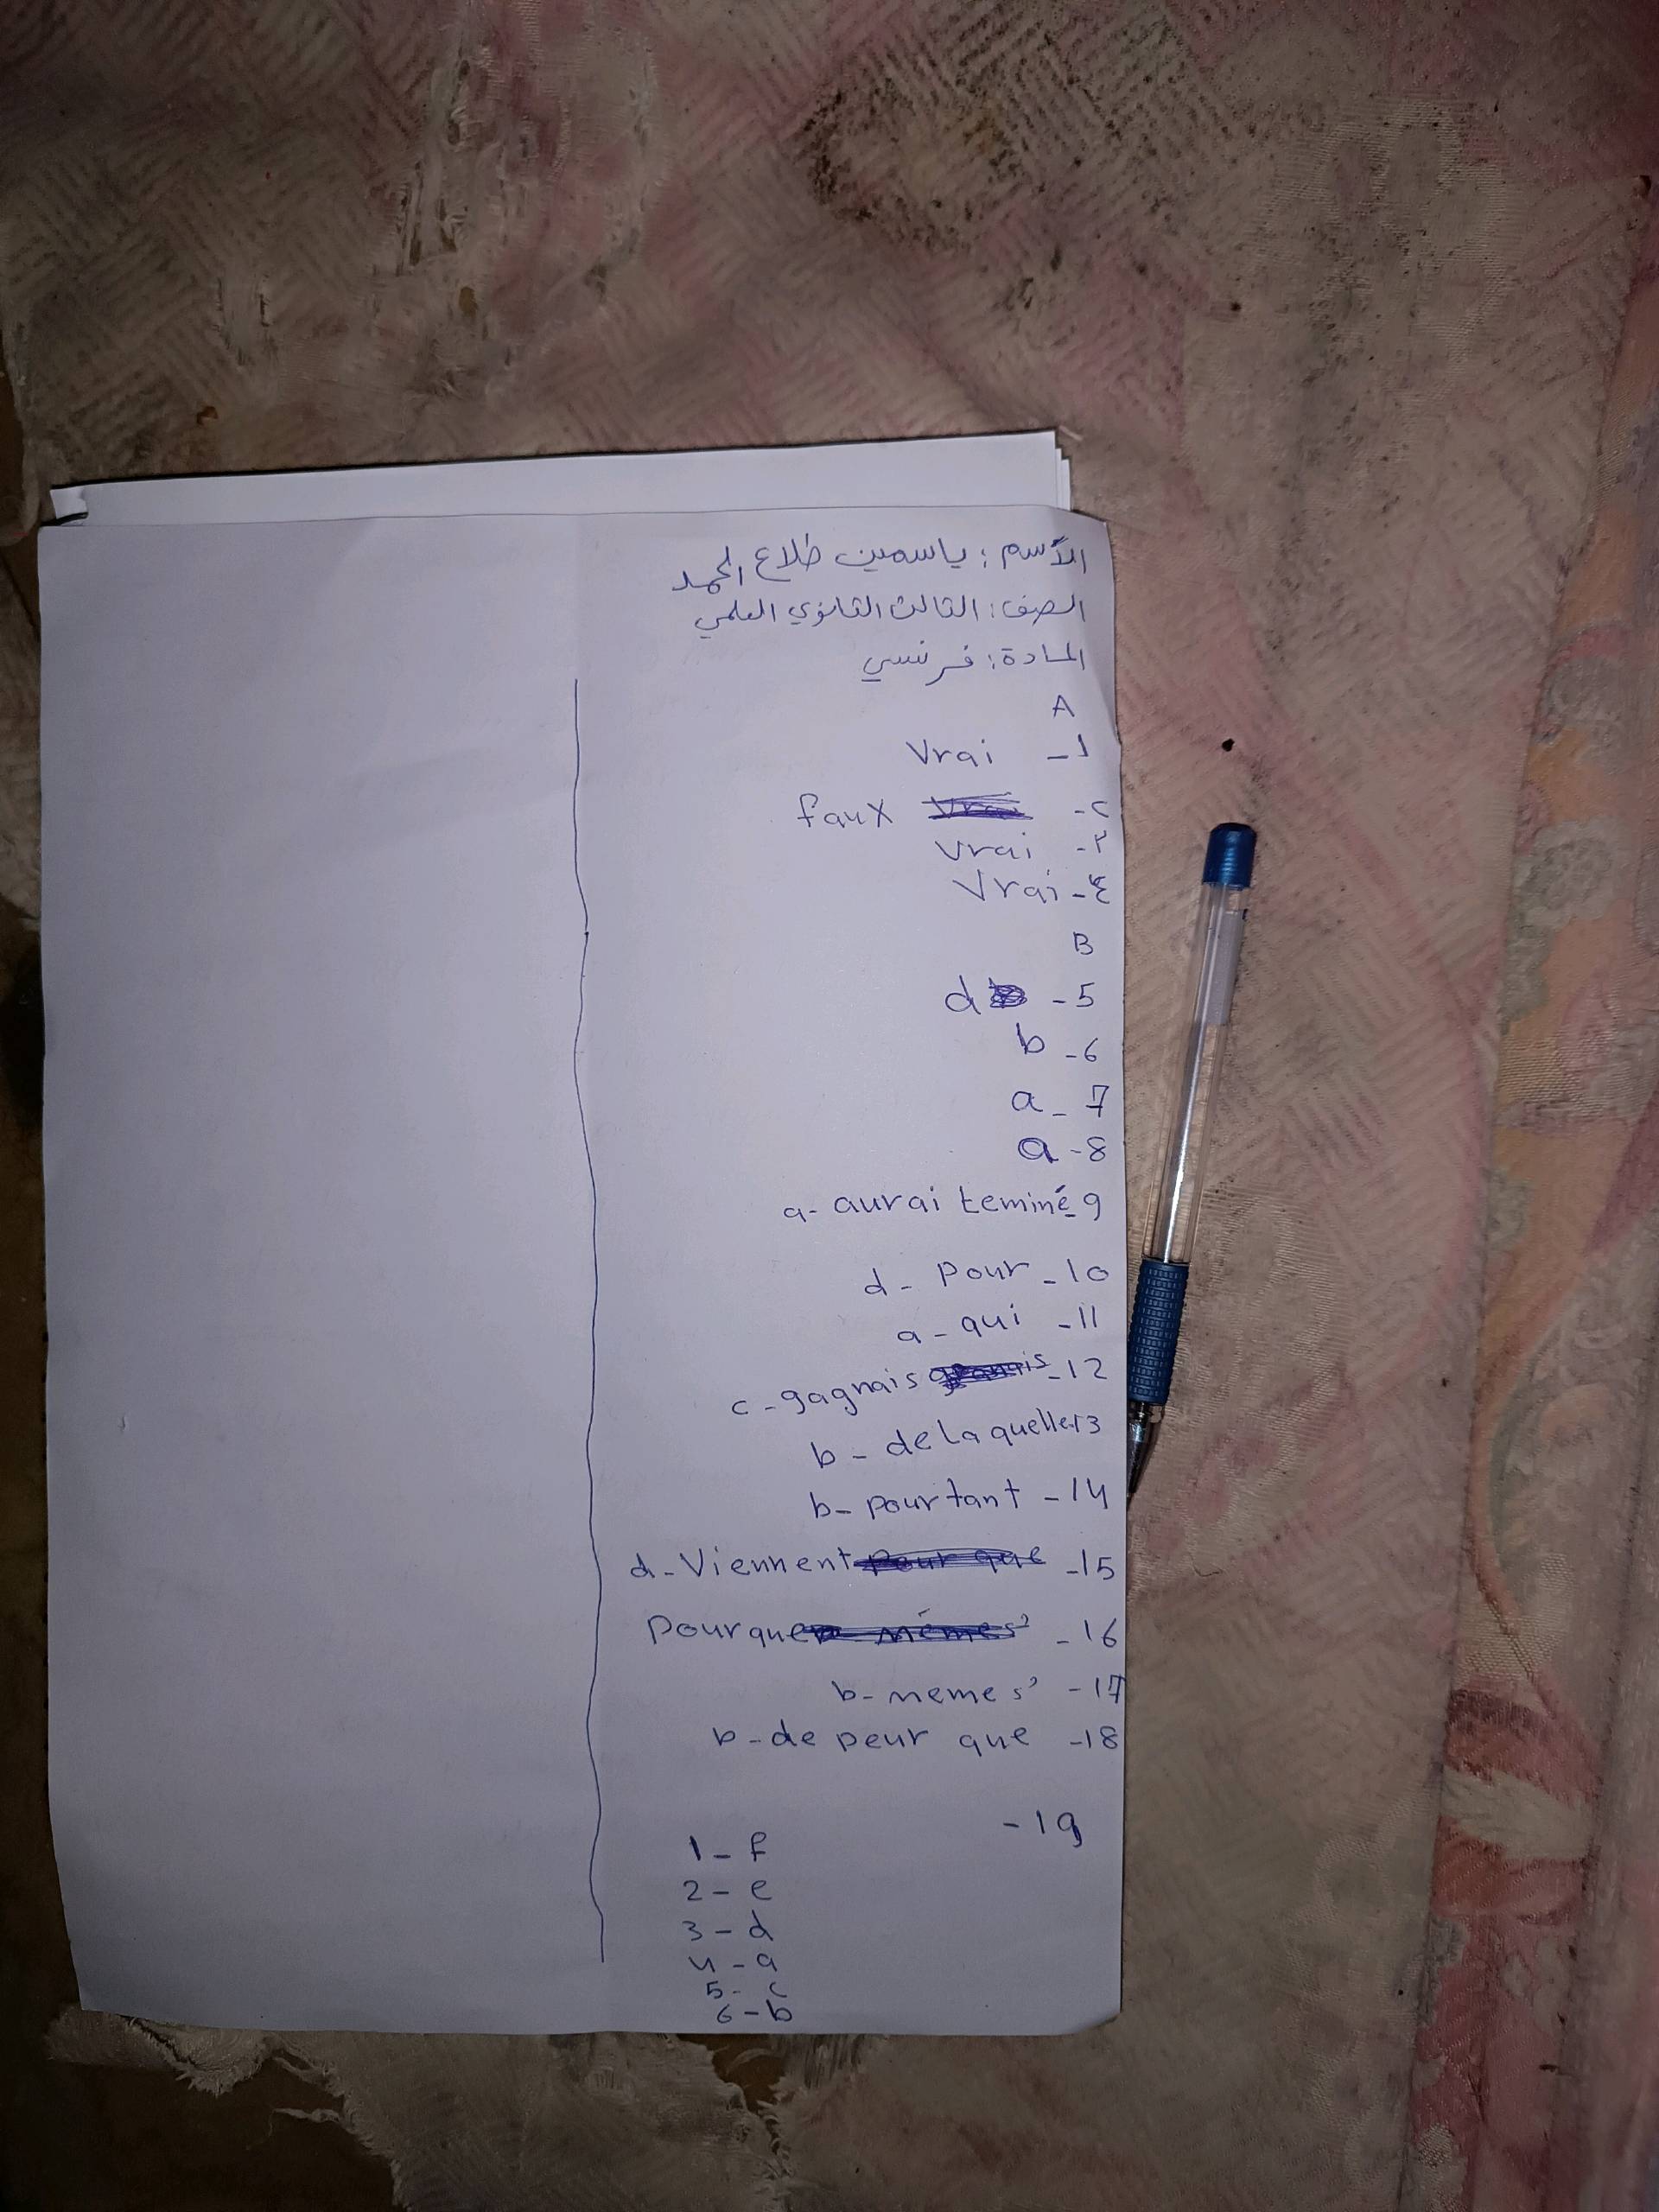 الأسم : ياسمين طلاع المحمد
الصف : الثالث الثانوي العلمي
المادة : فرنسي
A
1- Vrai
٢- faux
٣- Vrai
٤- Vrai
B
5- d
6- b
7- a
8- a
9- a- aurai teminé
10- d- pour
11- a- qui
12- c- gagnais
13- b- de laquelle
14- b- pourtant
15- d- Viennent
16- pour que
17- b- memes'
18- b- de peur que
19-
1- f
2- e
3- d
4- a
5- c
6- b